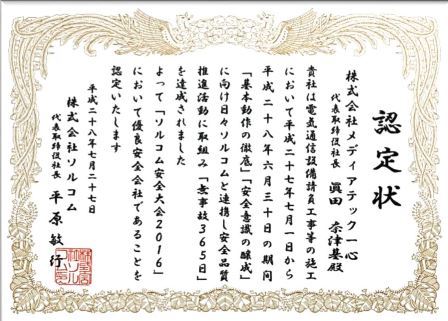 認定状
株式会社メディアテック一心
代表取締役社長 眞田 奈津基殿
貴社は電気通信設備請負工事等の施工
において平成二十七年七月一日から
平成二十八年六月三十日の期間
「基本動作の徹底」「安全意識の醸成」
に向け日々ソルコムと連携し安全品質
推進活動に取組み「無事故365日」
を達成されました
よって「ソルコム安全大会2016」
において優良安全会社であることを
認定いたします
平成二十八年七月二十七日
株式会社ソルコム
代表取締役社長 平原敏行